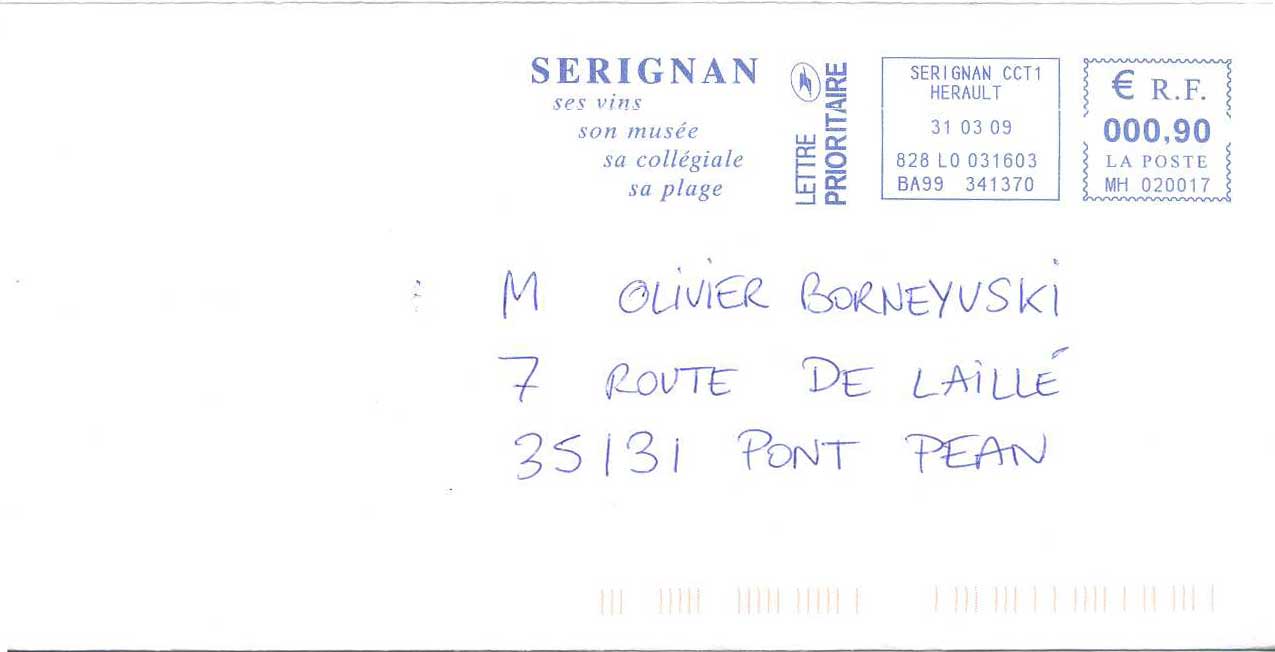 SERIGNAN
ses vins
son musée
sa collégiale
sa plage
LETTRE
PRIORITAIRE
SERIGNAN CCT1
HERAULT
31 03 09
828 L0 031603
BA99 341370
€ R.F.
000,90
LA POSTE
MH 020017
M OLIVIER BORNEYUSKI
7 ROUTE DE LAILLÉ
35131 PONT PEAN